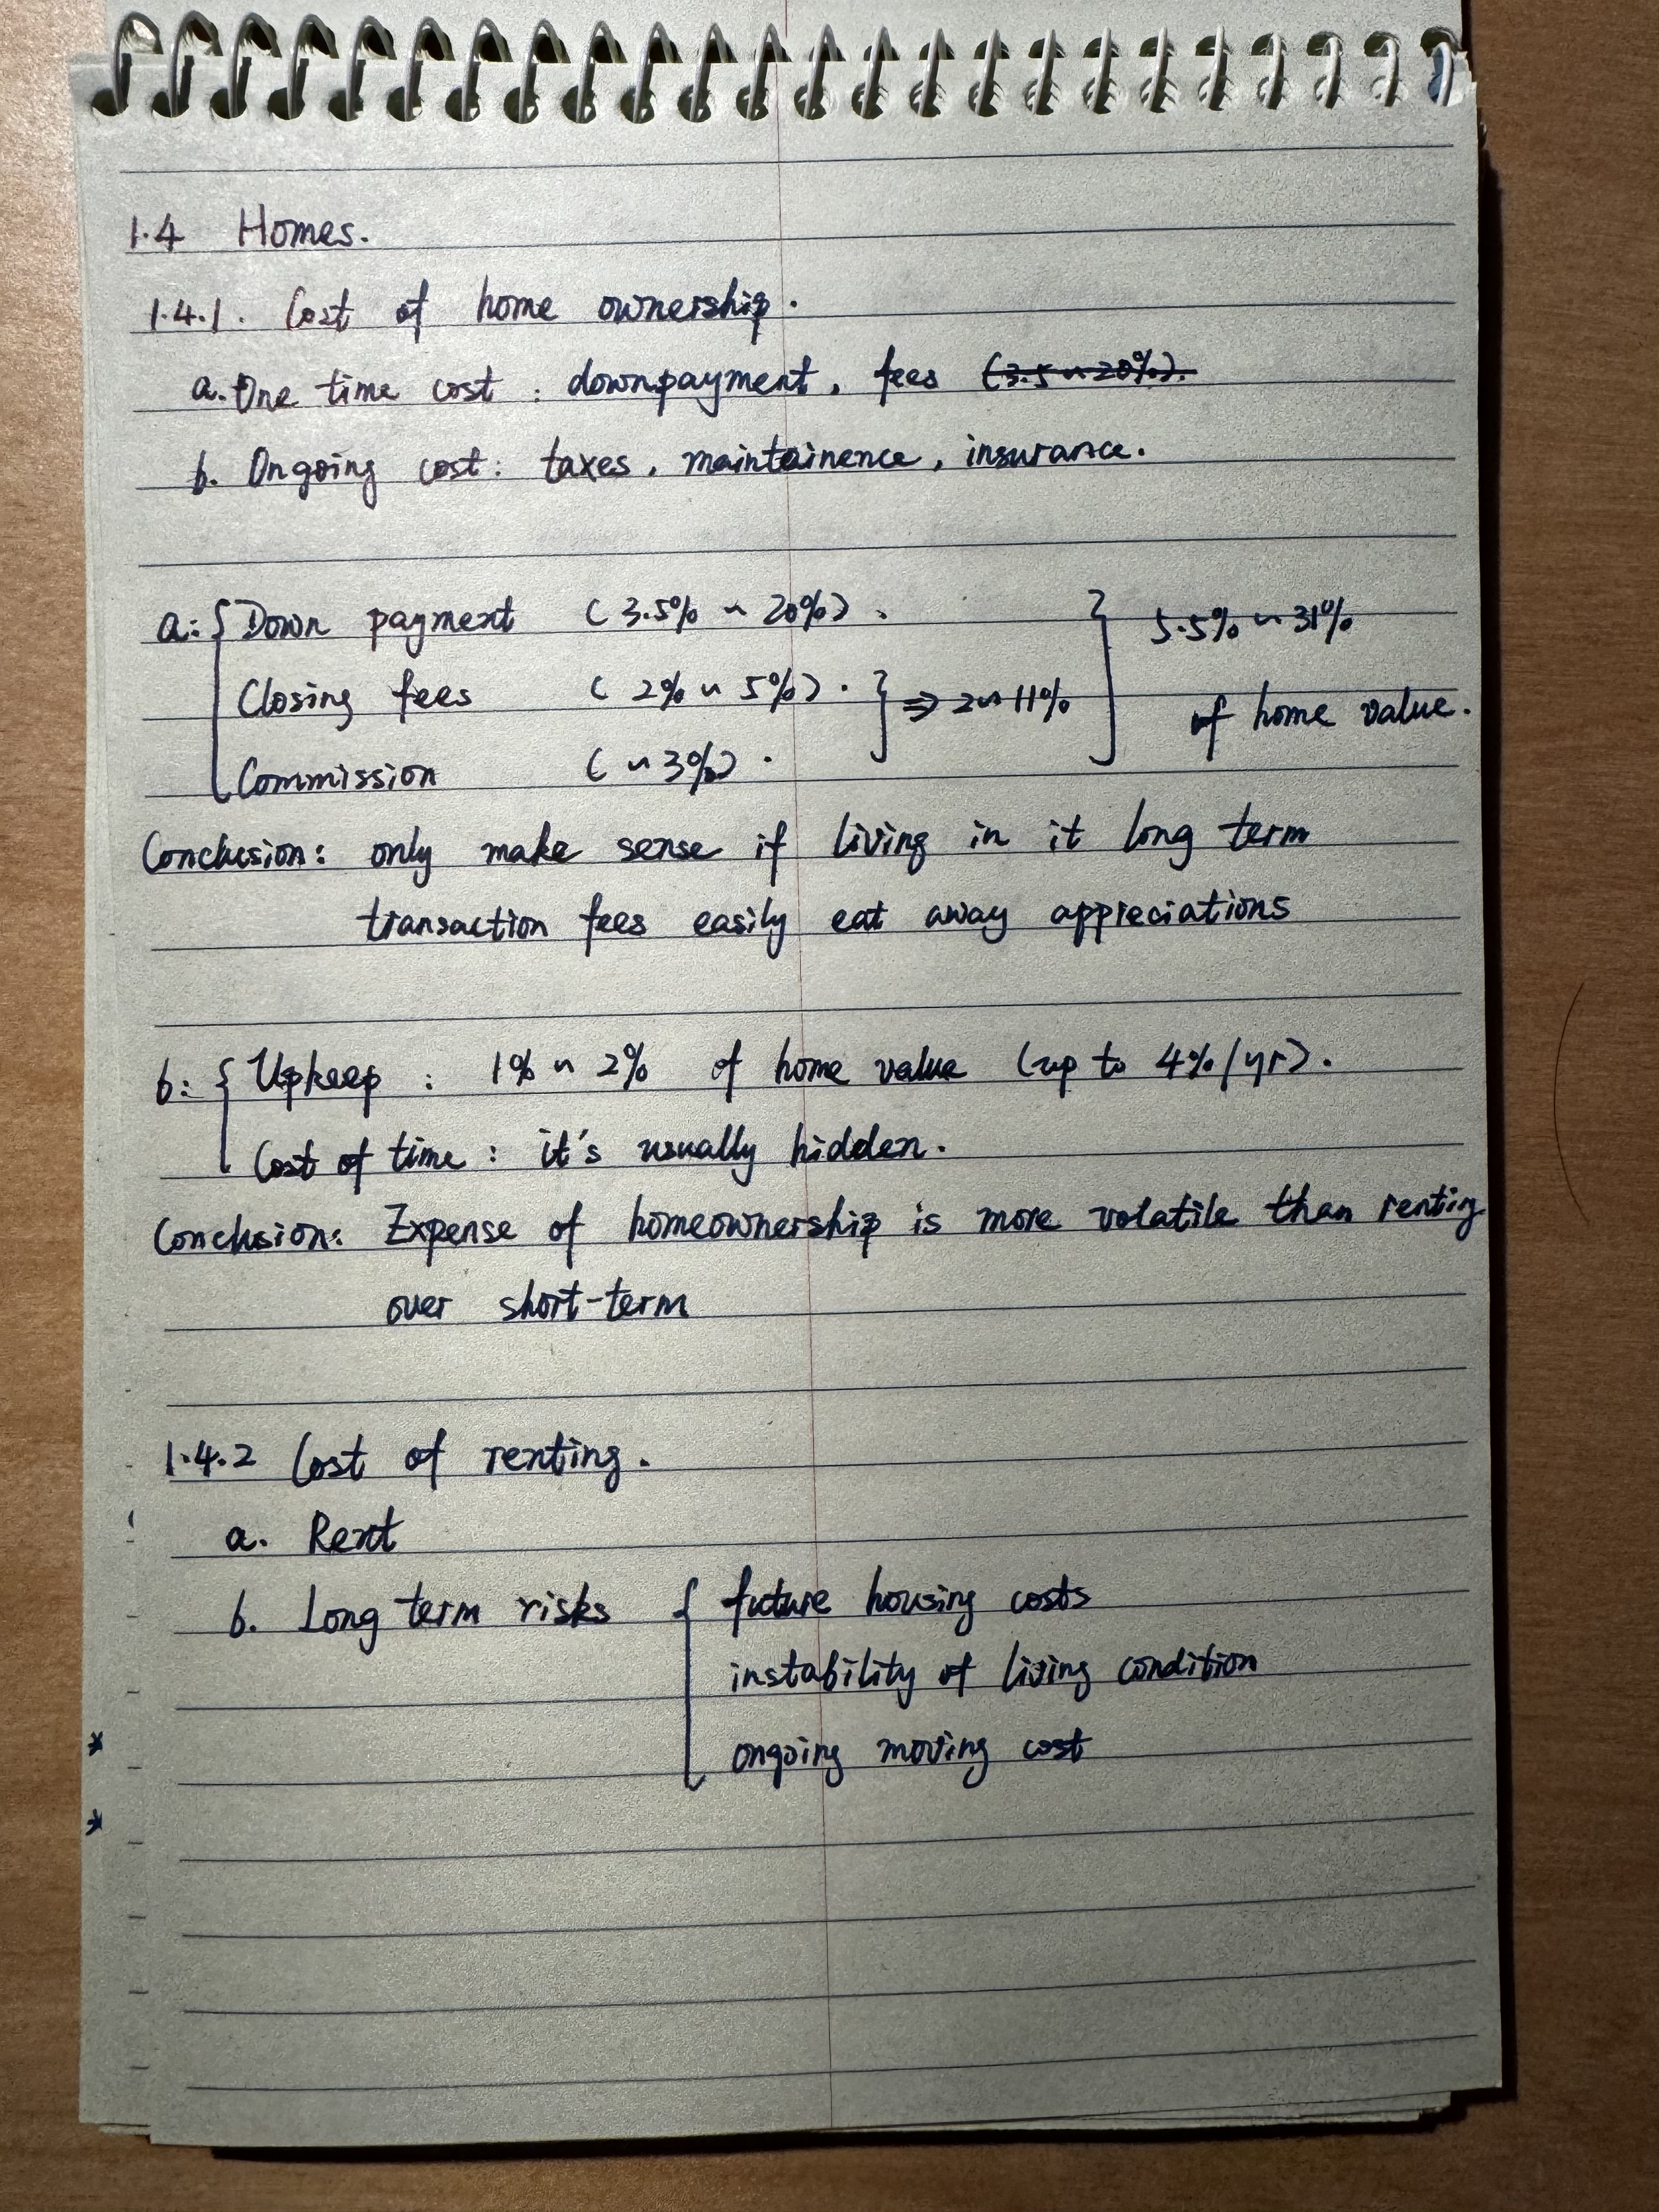 1.4 Homes.
1.4.1. Cost of home ownership.
a. One time cost : downpayment, fees (3.5 ~ 20%).
b. Ongoing cost: taxes, maintainence, insurance.
a: { Down payment (3.5% ~ 20%). } 5.5% ~ 31%
Closing fees (2% ~ 5%). } ⇒ 2~11% of home value.
Commission (~3%).
Conclusion: only make sense if living in it long term
transaction fees easily eat away appreciations
b: { Upkeep : 1% ~ 2% of home value (up to 4%/yr).
Cost of time : it's usually hidden.
Conclusion: Expense of homeownership is more volatile than renting
over short-term
1.4.2 Cost of renting.
a. Rent
b. Long term risks { future housing costs
instability of living condition
ongoing moving cost